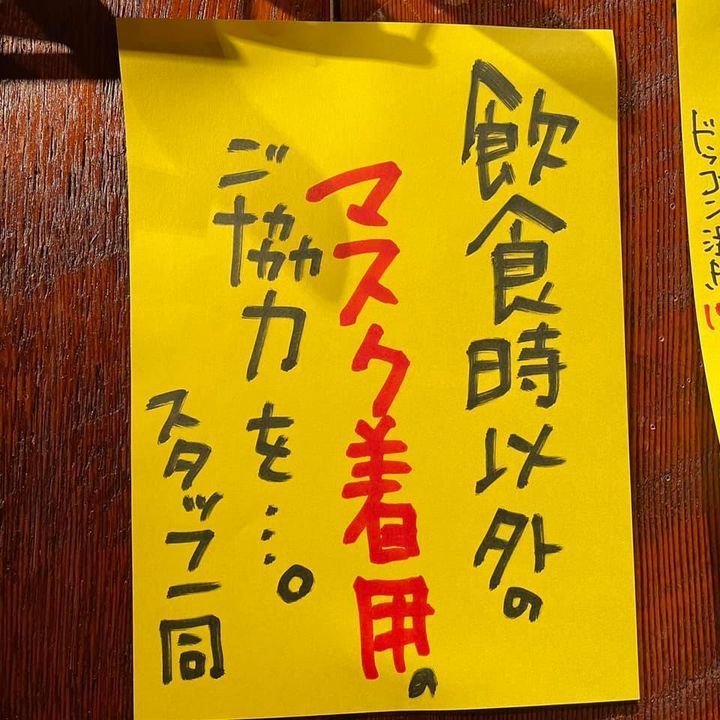 飲食時以外の
マスク着用の
ご協力を…。
スタッフ一同